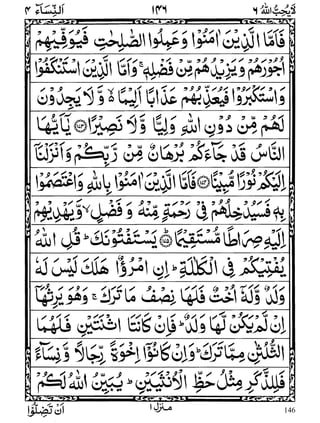 اَلنِّسَآء ۴
۱۴۶
لَا يُحِبُّ اللّٰهُ ۶
فَاَمَّا الَّذِيْنَ اٰمَنُوْا وَعَمِلُوا الصّٰلِحٰتِ فَيُوَفِّيْهِمْ
اُجُوْرَهُمْ وَيَزِيْدُهُمْ مِّنْ فَضْلِهٖ ۚ وَاَمَّا الَّذِيْنَ اسْتَنْكَفُوْا
وَاسْتَكْبَرُوْا فَيُعَذِّبُهُمْ عَذَابًا اَلِيْمًا ۙ وَّ لَا يَجِدُوْنَ
لَهُمْ مِّنْ دُوْنِ اللّٰهِ وَلِيًّا وَّ لَا نَصِيْرًا ﴿۱۷۳﴾ يٰۤاَيُّهَا
النَّاسُ قَدْ جَآءَكُمْ بُرْهَانٌ مِّنْ رَّبِّكُمْ وَاَنْزَلْنَاۤ
اِلَيْكُمْ نُوْرًا مُّبِيْنًا ﴿۱۷۴﴾ فَاَمَّا الَّذِيْنَ اٰمَنُوْا بِاللّٰهِ وَاعْتَصَمُوْا
بِهٖ فَسَيُدْخِلُهُمْ فِيْ رَحْمَةٍ مِّنْهُ وَ فَضْلٍ ۙ وَّيَهْدِيْهِمْ
اِلَيْهِ صِرَاطًا مُّسْتَقِيْمًا ﴿۱۷۵﴾ يَسْتَفْتُوْنَكَ ؕ قُلِ اللّٰهُ
يُفْتِيْكُمْ فِي الْكَلٰلَةِ ؕ اِنِ امْرُؤٌا هَلَكَ لَيْسَ لَهٗ
وَلَدٌ وَّلَهٗۤ اُخْتٌ فَلَهَا نِصْفُ مَا تَرَكَ ۚ وَهُوَ يَرِثُهَاۤ
اِنْ لَّمْ يَكُنْ لَّهَا وَلَدٌ ؕ فَاِنْ كَانَتَا اثْنَتَيْنِ فَلَهُمَا
الثُّلُثٰنِ مِمَّا تَرَكَ ؕ وَاِنْ كَانُوْۤا اِخْوَةً رِّجَالًا وَّ نِسَآءً
فَلِلذَّكَرِ مِثْلُ حَظِّ الْاُنْثَيَيْنِ ؕ يُبَيِّنُ اللّٰهُ لَكُمْ
اَنْ تَضِلُّوْا ؕ
منزل ۱
146